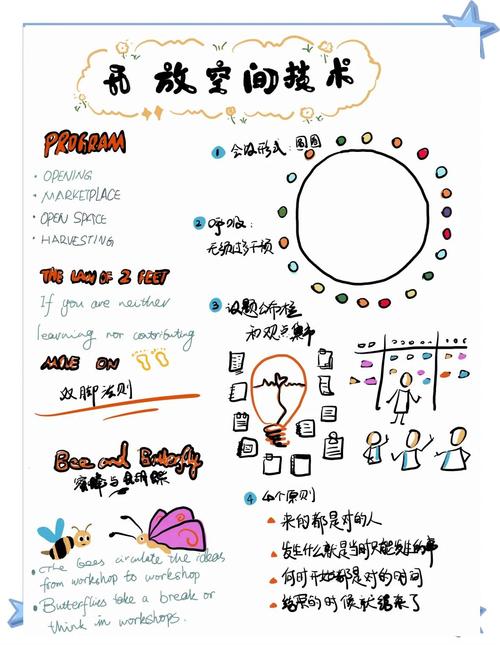 开放空间技术
PROGRAM
· OPENING
· MARKETPLACE
· OPEN SPACE
· HARVESTING
THE LAW OF 2 FEET
If you are neither
learning nor contributing
MOVE ON
双脚法则
Bee and Butterfly
蜜蜂与
· The bees circulate the ideas
from workshop to workshop
· Butterflies take a break or
think in workshops.
1 会议形式：圆圈
2 呼吸：
无须过多干预
3 议题公布栏
和观点集市
4 4个原则
来的都是对的人
发生什么就是当时只能发生的事
何时开始都是对的时间
结束的时候就结束了